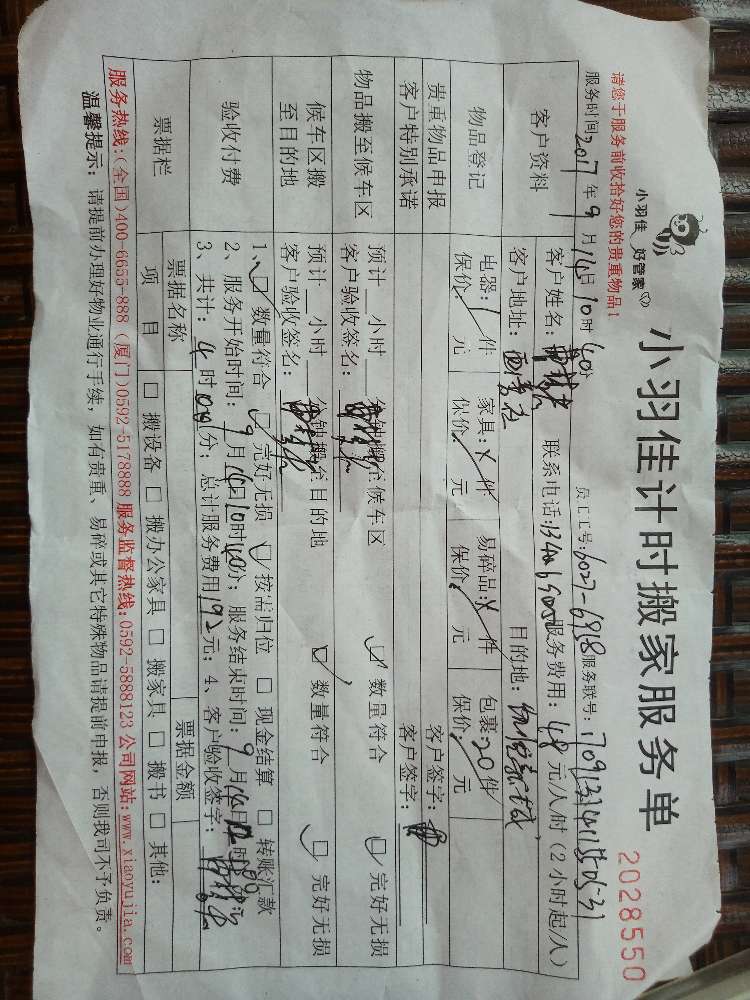 小羽佳 好管家
小羽佳计时搬家服务单
2028550
请您于服务前收拾好您的贵重物品!
员工工号:6027-6928 服务联号:
服务时间:2017年9月14日10时40分
客户资料
客户姓名: 联系电话: 服务费用:48元/人/时(2小时起/人)
客户地址: 目的地:
物品登记
电器:1件 家具:X件 易碎品:X件 包裹:20件
保价:/元 保价:/元 保价:/元 保价:/元
贵重物品申报 客户签字:
客户特别承诺 客户签字:
物品搬至候车区
预计__小时__分钟搬至候车区 ☑数量符合 ☑完好无损
客户验收签名:
候车区搬至目的地
预计__小时__分钟搬至目的地 ☑数量符合 ☑完好无损
客户验收签名:
验收付费
1、☑数量符合 ☑完好无损 ☑按需归位 □现金结算 □转账汇款
2、服务开始时间:9月14日10时40分;服务结束时间:9月14日 时 分
3、共计:4时00分;总计服务费用192元;4、客户验收签字:
票据栏 票据名称 票据金额
项目 □搬设备 □搬办公家具 □搬家具 □搬书 □其他:
服务热线:(全国)400-6655-888 (厦门)0592-5178888 服务监督热线:0592-5888123 公司网站:www.xiaoyujia.com
温馨提示: 请提前办理好物业通行手续,如有贵重、易碎或其它特殊物品请提前申报,否则我司不予负责。